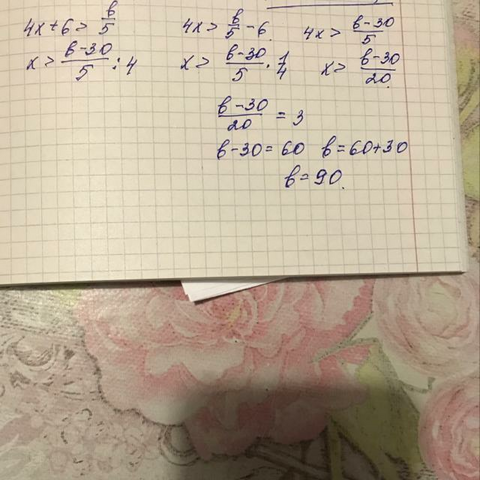 4x+6 > в/5 4x > в/5 - 6. 4x > (в-30)/5
x > (в-30)/5 : 4 x > (в-30)/5 · 1/4 x > (в-30)/20.
(в-30)/20 = 3
в-30 = 60 в = 60+30
в = 90.